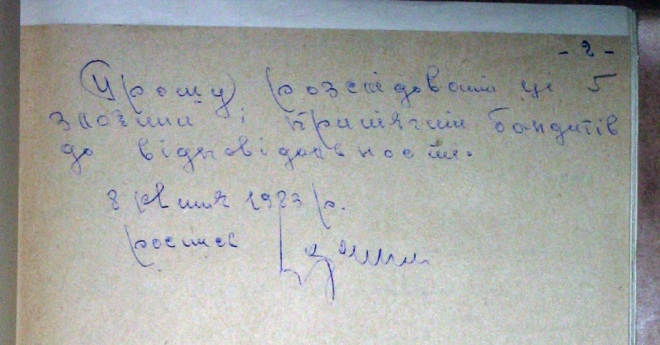 - 2 -
Прошу розслідовати ці 5
злочини і притягти бандитів
до відповідальности.
8 квітня 1983 р.